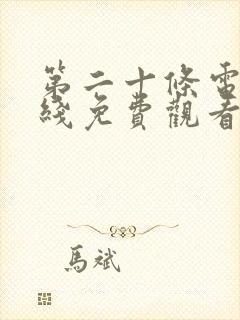 第二十條電
綫免費觀看
馬斌